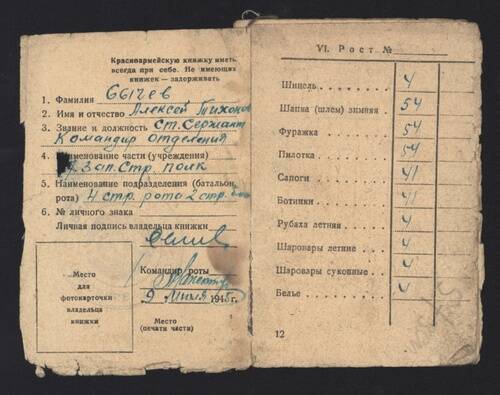 Красноармейскую книжку иметь
всегда при себе. Не имеющих
книжек — задерживать
1. Фамилия Сычев
2. Имя и отчество Алексей Тихонов
3. Звание и должность Ст. Сержант
Командир отделения
4. Наименование части (учреждения)
Зап. Стр. полк
5. Наименование подразделения (батальон,
рота) 4 стр. рота 2 стр.
6. № личного знака
Личная подпись владельца книжки
Командир роты
9 Июля 194 г.
Место
для
фотокарточки
владельца
книжки
Место
(печати части)
VI. Рост №
Шинель 4
Шапка (шлем) зимняя 54
Фуражка 54
Пилотка 54
Сапоги 41
Ботинки 41
Рубаха летняя 4
Шаровары летние 4
Шаровары суконные 4
Белье 4
12